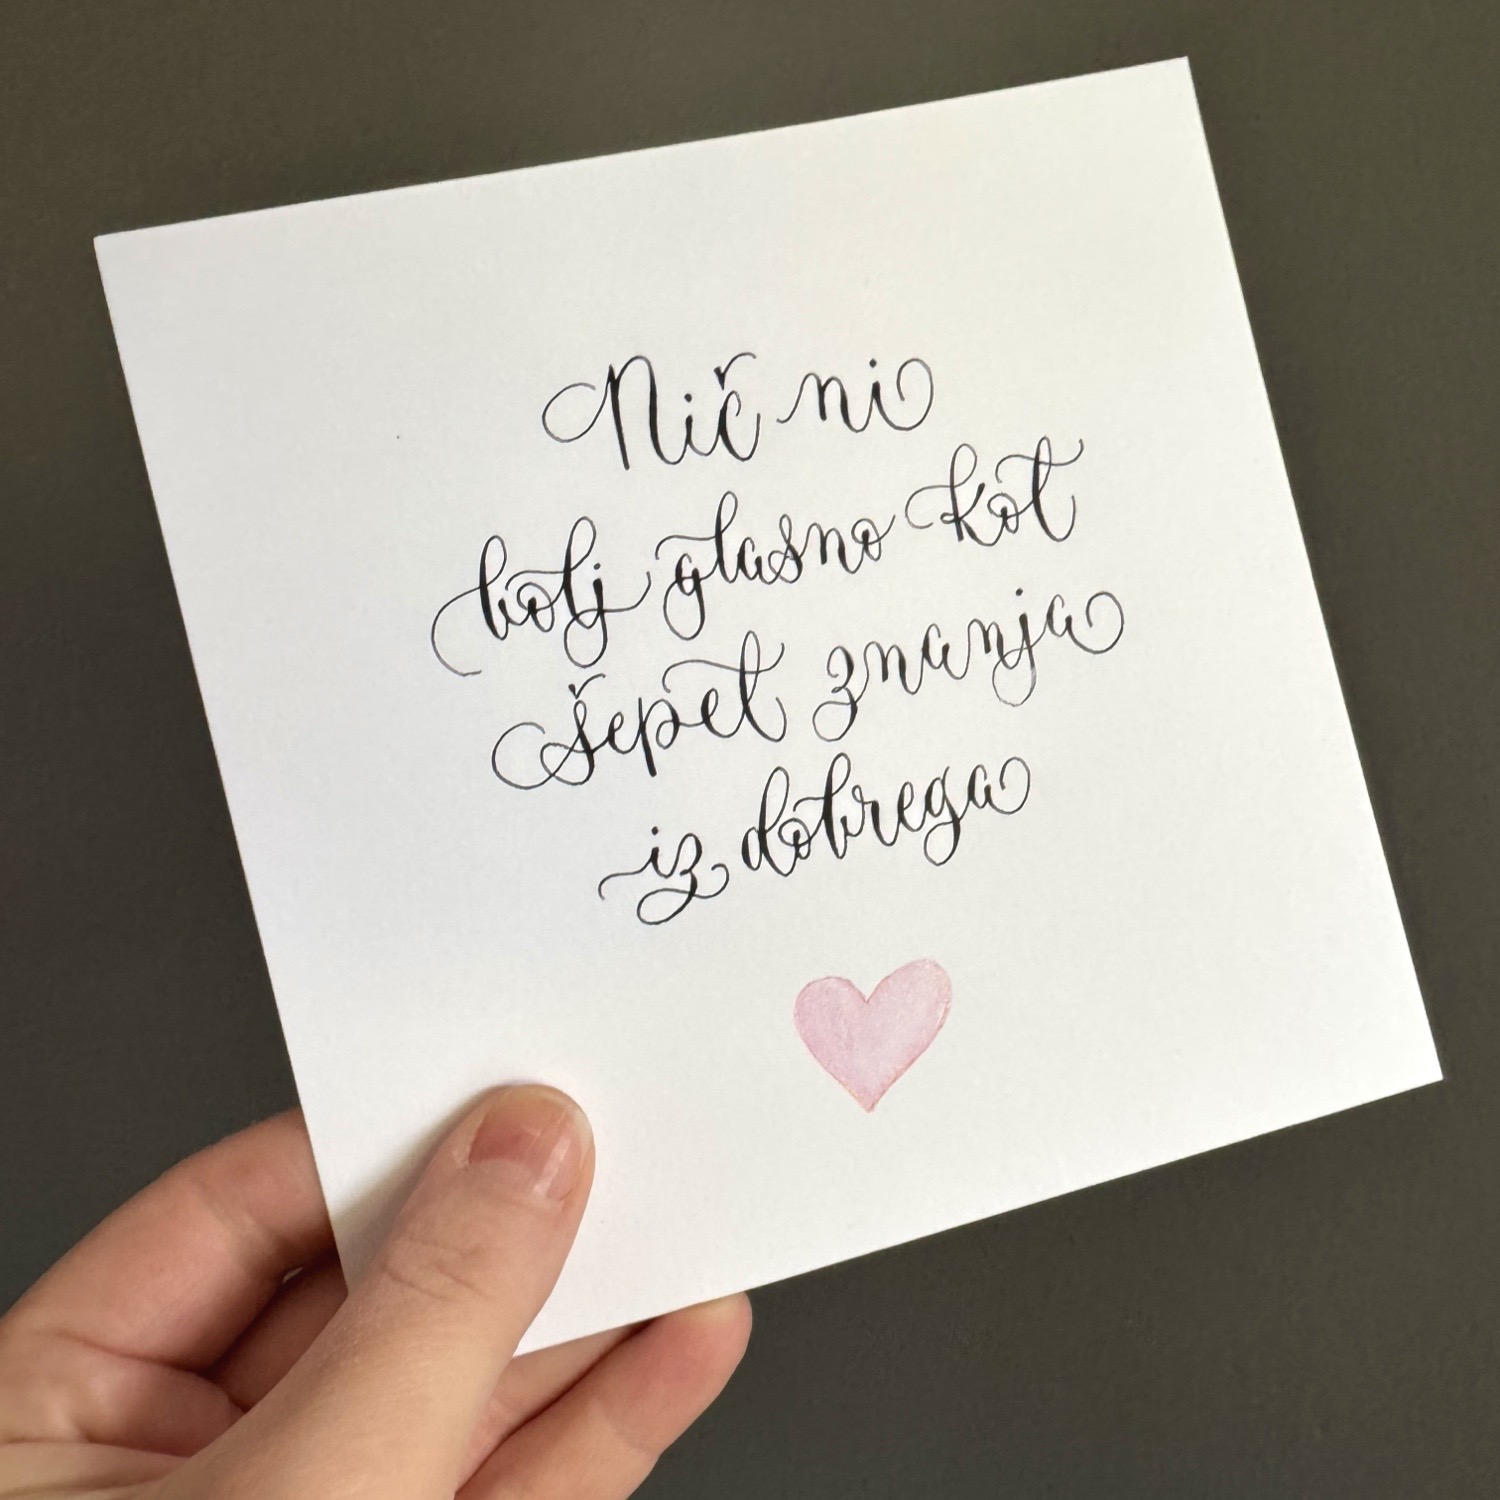 Nič ni
bolj glasno kot
šepet znanja
iz dobrega